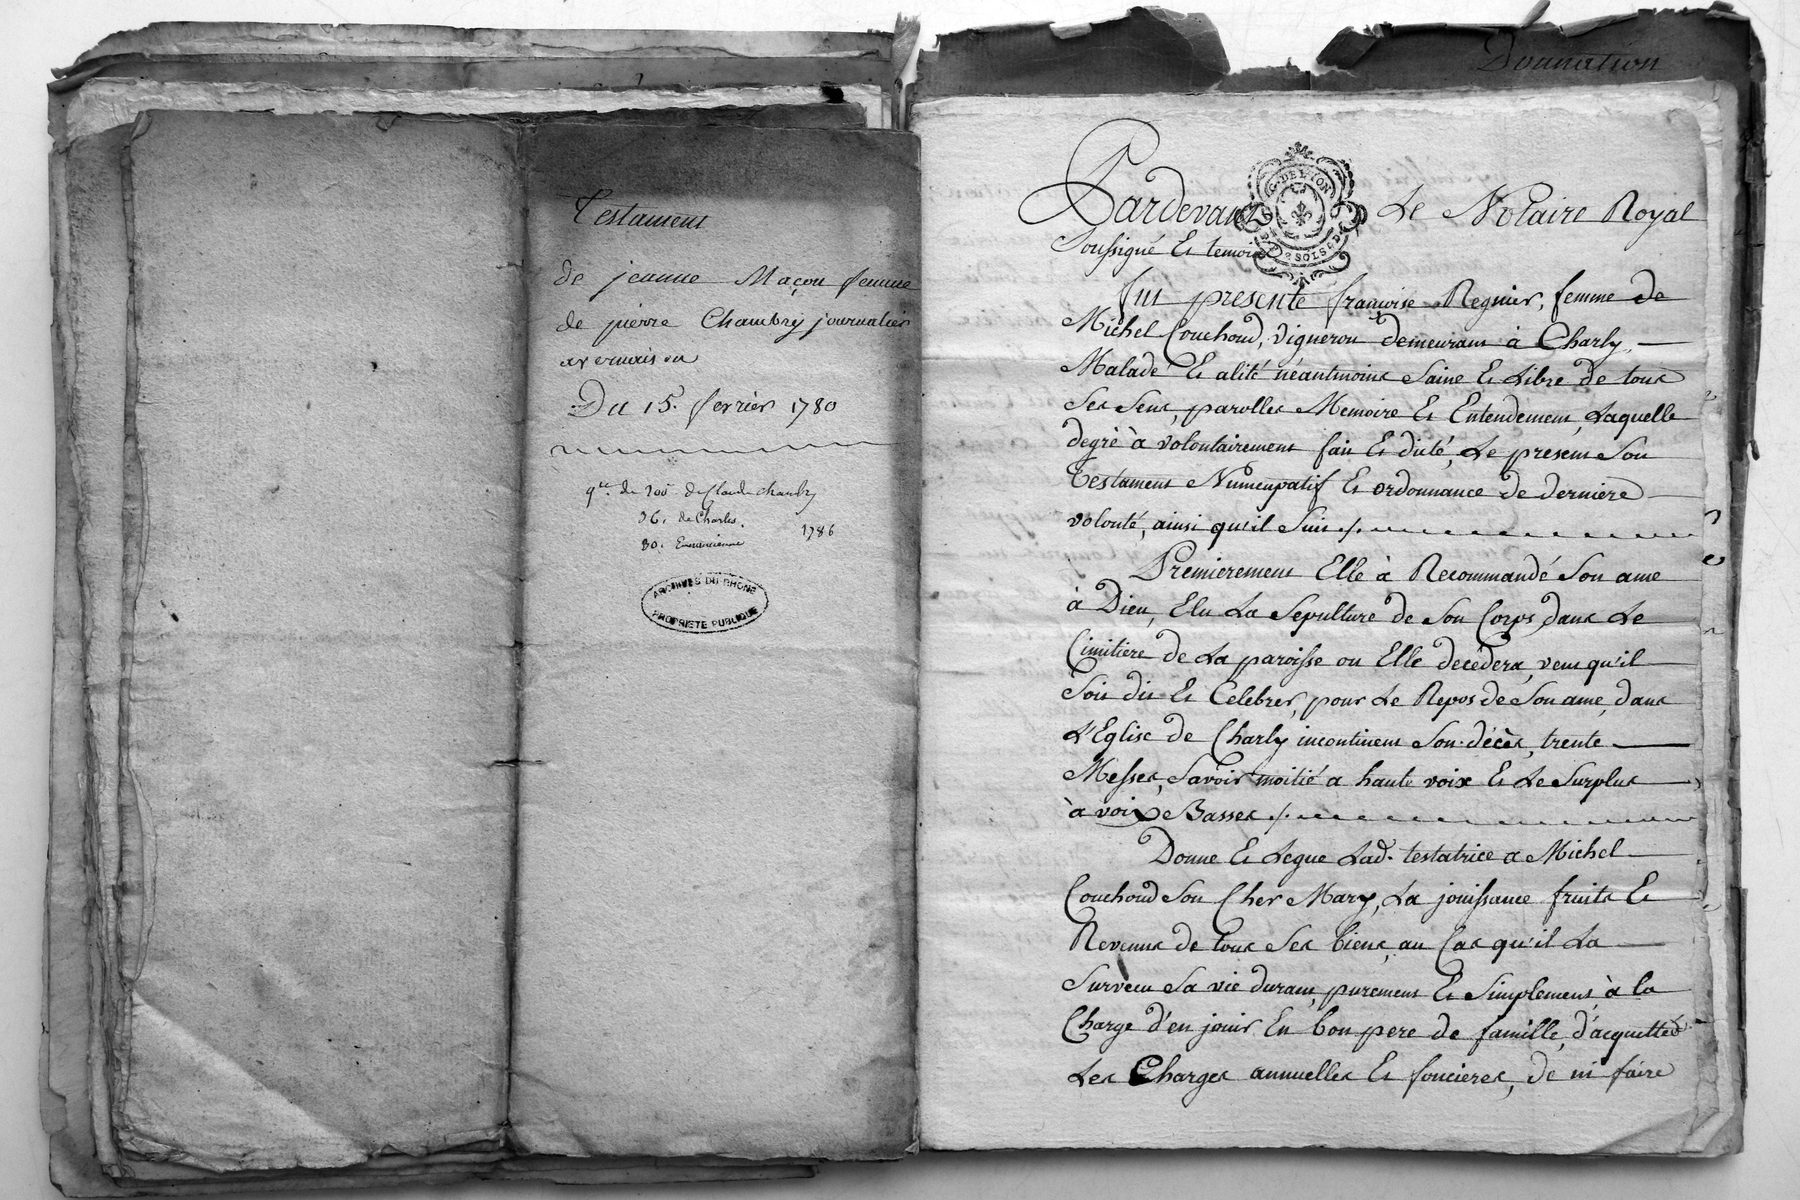 Testament
de jeanne Maçon femme
de pierre Chambry journalier
a vernaison
Du 15. fevrier 1780
de Claude chambry
36. de Charles.
30. 1786
ARCHIVES DU RHONE
PROPRIETE PUBLIQUE
Donnation
G. DE LYON
2 SOLS 8 D
Pardevant Le Notaire Royal
Soussigné Et temoins
fut presente françoise Regnier, femme de
Michel Couchoud, vigneron demeurant à Charly,
Malade Et alité néantmoins Saine Et Libre de tous
Ses Sens, parolles Memoire Et Entendement, Laquelle
degré à volontairement fait Et dicté, Le present Son
testament Nuncupatif Et ordonnance de derniere
volonté, ainsi qu'il Suit /.
Premierement Elle à Recommandé Son ame
à Dieu, Elu La Sepulture de Son Corps dans Le
Cimitière de La paroisse ou Elle decédera, veut qu'il
Soit dit Et Celebrer, pour Le Repos de Son ame, dans
L'Eglise de Charly incontinent Son décès, trente
Messes, Savoir moitié a haute voix Et Le Surplus
à voix Basses /.
Donne Et Legue Lad. testatrice a Michel
Couchoud Son Cher Mary, La jouissance fruits Et
Revenus de tous Ses biens, au Cas qu'il La
Survecu Sa vie durant, purement Et Simplement, à la
Charge d'en jouir En bon pere de famille, d'acquitter
Les Charges annuelles Et foncieres, de ni faire